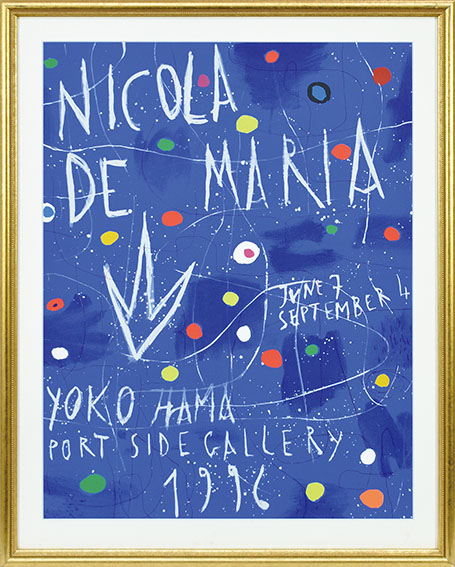 NICOLA
DE MARIA
JUNE 7
SEPTEMBER 4
YOKOHAMA
PORT SIDE GALLERY
1996